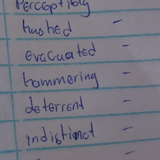 Perceptibly
hushed -
evacuated -
hammering -
deterrent -
indistinct -